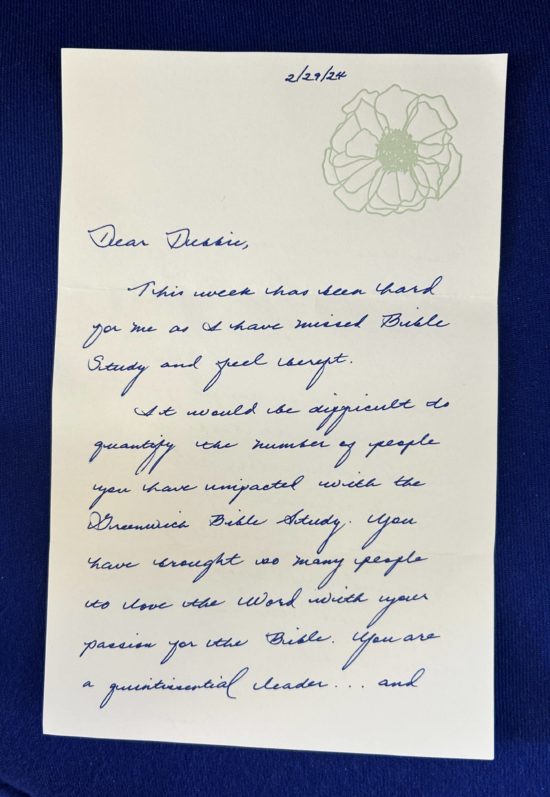 2/29/24
Dear Debbie,
This week has been hard
for me as I have missed Bible
Study and feel bereft.
It would be difficult to
quantify the number of people
you have impacted with the
Greenwich Bible Study. You
have brought so many people
to love the Word with your
passion for the Bible. You are
a quintissential leader... and